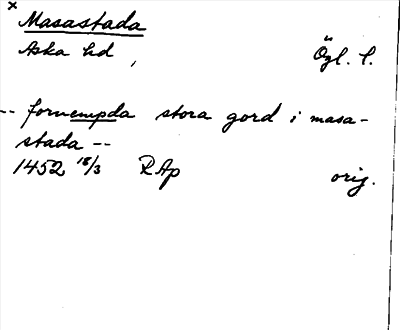 × Masastada
Aska hd, Ögl. l.
-- forvempda stora gord i masa-
stada --
1452 18/3 RAp orig.